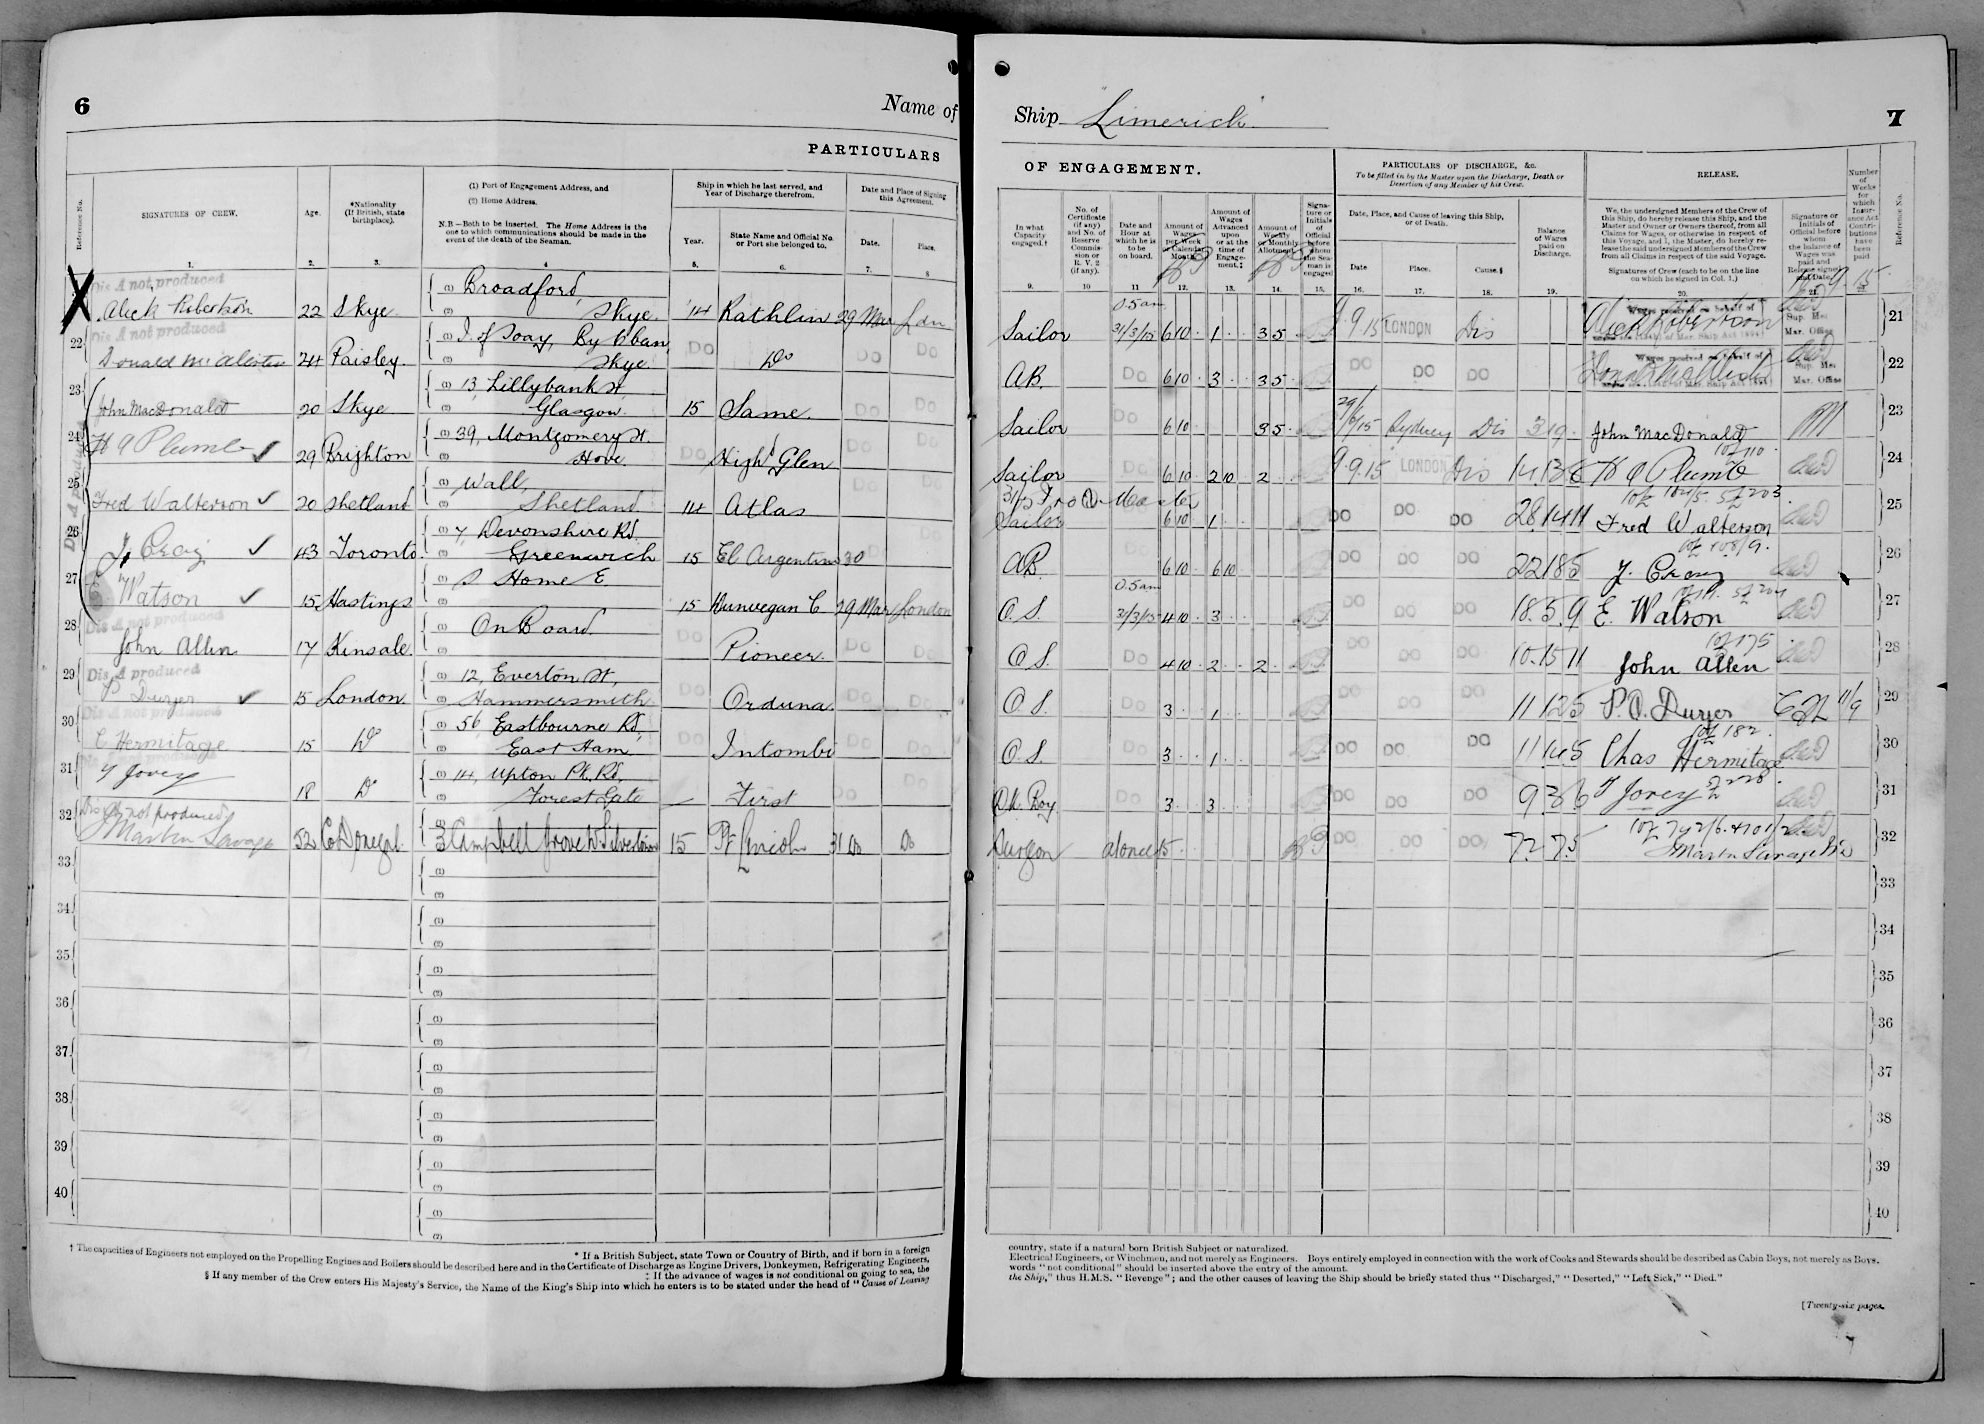 6
Name of
PARTICULARS
Reference No.
SIGNATURES OF CREW.
Age.
*Nationality
(If British, state
birthplace).
(1) Port of Engagement Address, and
(2) Home Address.
N.B—Both to be inserted. The Home Address is the
one to which communications should be made in the
event of the death of the Seaman.
Ship in which he last served, and
Year of Discharge therefrom.
Year.
State Name and Official No.
or Port she belonged to.
Date and Place of Signing
this Agreement.
Date.
Place.
1. 2. 3. 4 5. 6. 7. 8
Dis A not produced
Alick Robertson 22 Skye (1) Broadford, (2) Skye. '14 Rathlin 29 Mar Ldn
Dis A not produced
22 Donald McAlister 24 Paisley. (1) I. of Soay, By Oban, (2) Skye Do Do Do Do
23 John MacDonald 20 Skye (1) 13, Lillybank St, (2) Glasgow. 15 Same. Do Do
24 H A Plumb 29 Brighton (1) 39, Montgomery St. (2) Hove. Do High Glen Do Do
25 Fred Walterson 20 Shetland (1) Wall, (2) Shetland 14 Atlas Do
26 Craig 43 Toronto. (1) 7, Devonshire Rd. (2) Greenwich 15 El Argentino 30
27 Watson 15 Hastings (1) S Home E (2) 15 Dunvegan C 29 Mar London
Dis A not produced
28 John Allen 17 Kinsale. (1) On Board. (2) Do Pioneer. Do Do
Dis A produced
29 P Duryer 15 London. (1) 12, Everton St, (2) Hammersmith Do Orduna. Do Do
Dis A not produced
30 C Hermitage 15 Do (1) 56, Eastbourne Rd, (2) East Ham Do Intombi Do Do
31 Y Jovey 18 Do (1) 14, Upton Pk. Rd, (2) Forest Gate — First Do Do
Dis A not produced
32 Martin Savage 52 Co Donegal 3 Campbell Grove W Silvertown 15 Pt Lincoln 31 Do Do
33
34
35
36
37
38
39
40
* If a British Subject, state Town or Country of Birth, and if born in a foreign
† The capacities of Engineers not employed on the Propelling Engines and Boilers should be described here and in the Certificate of Discharge as Engine Drivers, Donkeymen, Refrigerating Engineers,
‡ If the advance of wages is not conditional on going to sea, the
§ If any member of the Crew enters His Majesty's Service, the Name of the King's Ship into which he enters is to be stated under the head of "Cause of Leaving
Ship "Limerick"
7
OF ENGAGEMENT.
PARTICULARS OF DISCHARGE, &c.
To be filled in by the Master upon the Discharge, Death or
Desertion of any Member of his Crew.
RELEASE.
In what
Capacity
engaged.†
No. of
Certificate
(if any)
and No. of
Reserve
Commis-
sion or
R. V. 2
(if any).
Date and
Hour at
which he is
to be
on board.
Amount of
Wages
per Week
or Calendar
Month.
Amount of
Wages
Advanced
upon
or at the
time of
Engage-
ment.‡
Amount of
Weekly
or Monthly
Allotment.
Signa-
ture or
Initials
of
Official
before
whom
the Sea-
man is
engaged
Date, Place, and Cause of leaving this Ship,
or of Death.
Date
Place.
Cause.§
Balance
of Wages
paid on
Discharge.
We, the undersigned Members of the Crew of
this Ship, do hereby release this Ship, and the
Master and Owner or Owners thereof, from all
Claims for Wages, or otherwise in respect of
this Voyage, and I, the Master, do hereby re-
lease the said undersigned Members of the Crew
from all Claims in respect of the said Voyage.
Signatures of Crew (each to be on the line
on which he signed in Col. 1.)
Signature or
Initials of
Official before
whom
the balance of
Wages was
paid and
Release signed
and Date.
Number
of
Weeks
for
which
Insur-
ance Act
Contri-
butions
have
been
paid
Reference No.
9. 10 11 12. 13. 14. 15. 16. 17. 18. 19. 20. 21.
Sailor 0.5 am 31/3/15 6 10 1 35 9.9.15 LONDON Dis Alick Robertson 21
AB. Do 6 10 3 35 DO DO DO Donald McAlister 22
Sailor Do 6 10 35 29/6/15 Sydney Dis 3 19 John MacDonald 23
Sailor Do 6 10 2 10 2 9.9.15 LONDON Dis 14.13.6 H A Plumb 24
Sailor 6 10 1 DO DO DO 28.14.11 Fred Walterson 25
AB. 6 10 6 10 DO DO DO 22 18 5 Craig 26
O.S. 0.5 am 31/3/15 4 10 3 DO DO DO 18.5.9 E. Watson 27
O.S. Do 4 10 2 2 DO DO DO 10.15.11 John Allen 28
O S. Do 3 1 DO DO DO 11 12 5 P. O. Duryer 11/9 29
O. S. Do 3 1 DO DO DO 11 4 5 Chas Hermitage 30
Dk Boy Do 3 3 DO DO DO 9 3 6 Y Jovey 31
Surgeon at once DO DO DO 72.7.5 Martin Savage 32
33
34
35
36
37
38
39
40
country, state if a natural born British Subject or naturalized.
Electrical Engineers, or Winchmen, and not merely as Engineers. Boys entirely employed in connection with the work of Cooks and Stewards should be described as Cabin Boys, not merely as Boys.
words "not conditional" should be inserted above the entry of the amount.
the Ship," thus H.M.S. "Revenge"; and the other causes of leaving the Ship should be briefly stated thus "Discharged," "Deserted," "Left Sick," "Died."
[Twenty-six pages.